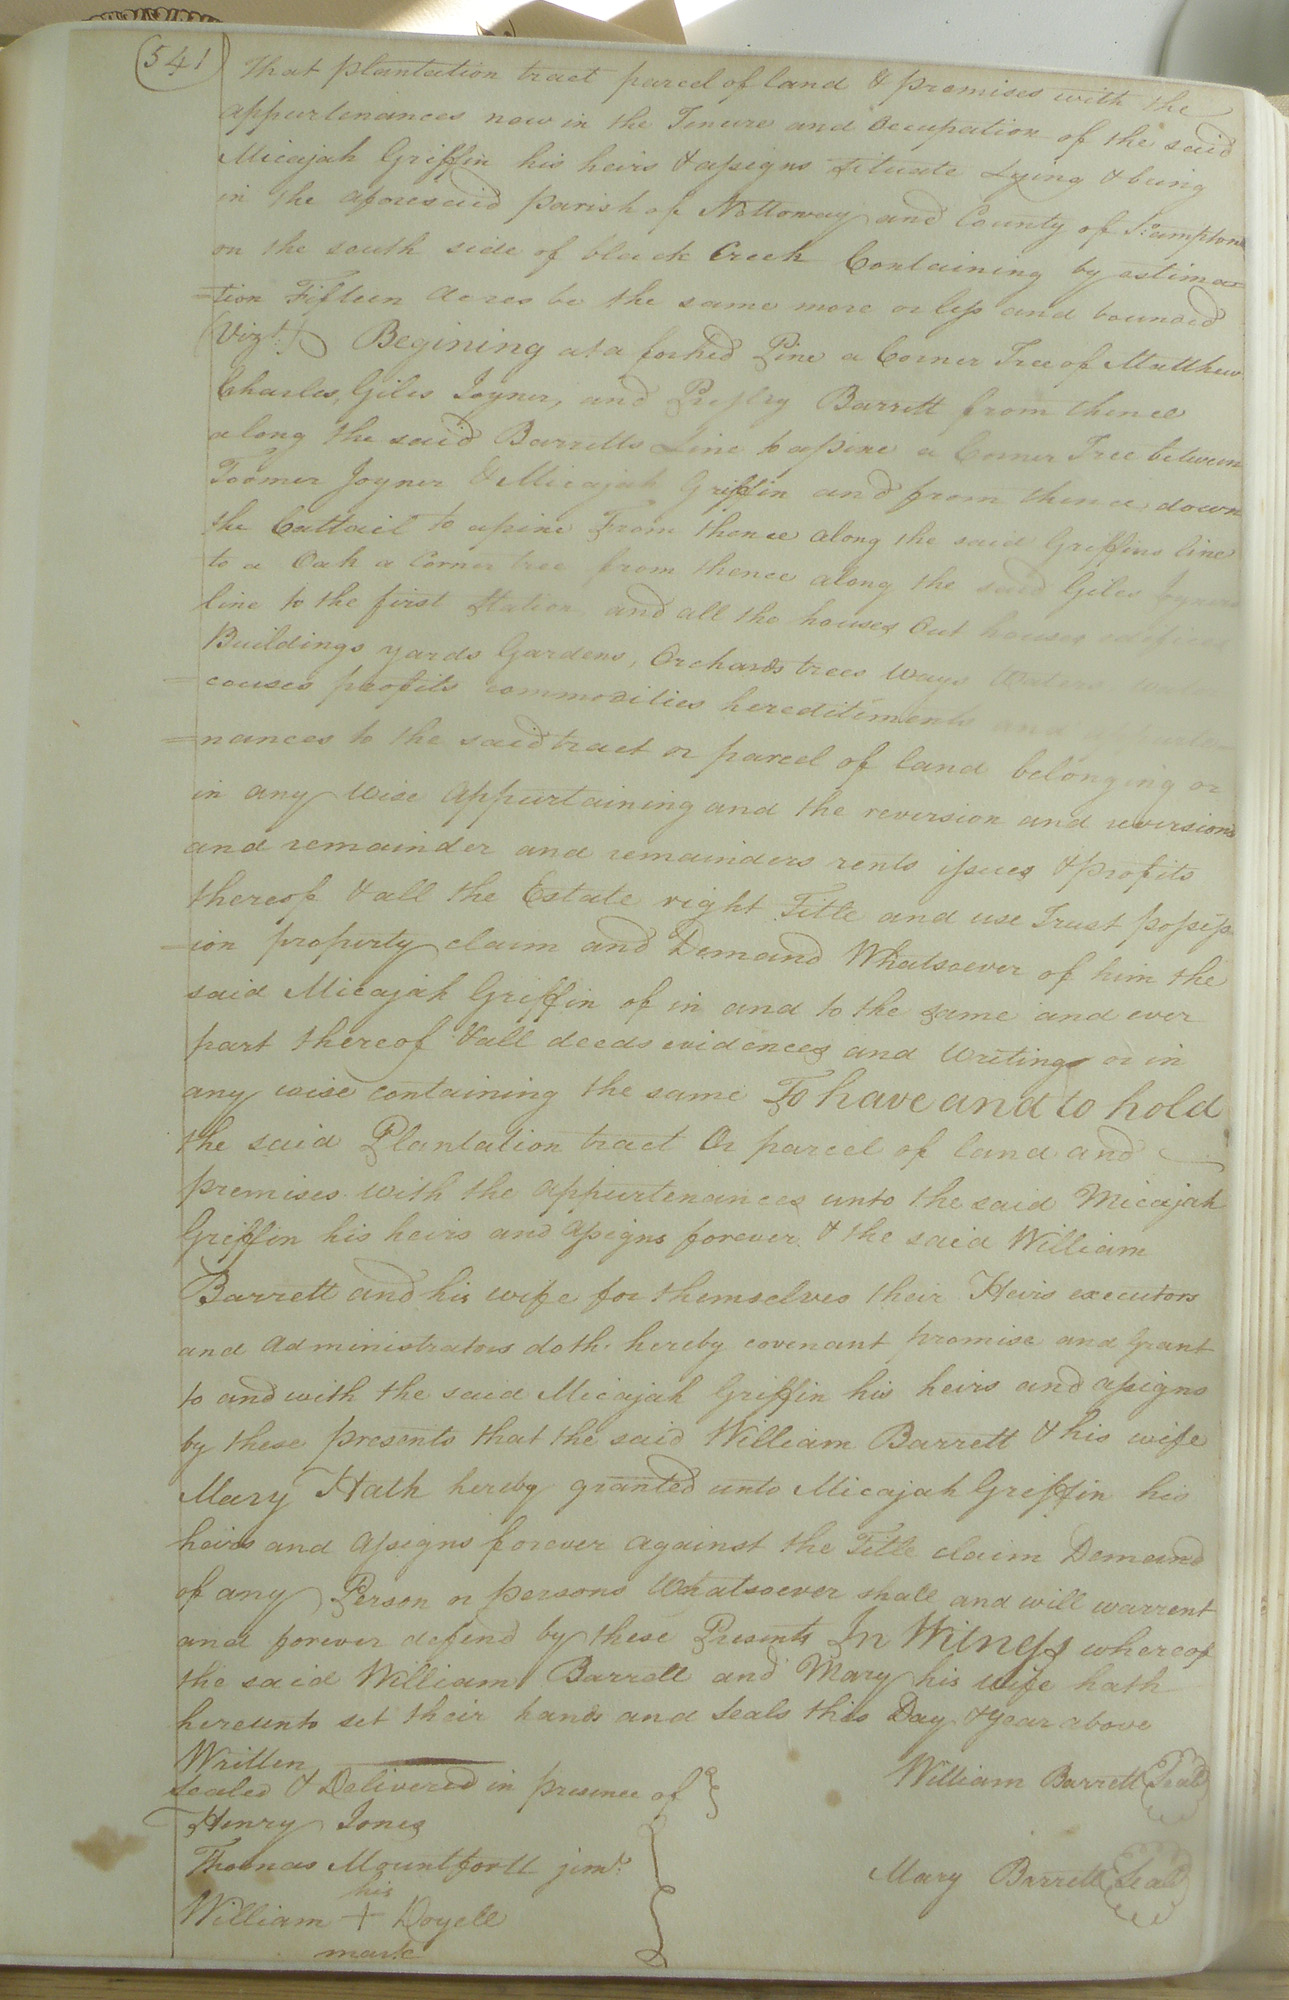 541
That plantation tract parcel of land & premises with the
appurtenances now in the Tenure and Occupation of the said
Micajah Griffin his heirs & assigns situate Lying & being
in the aforesaid parish of Nottoway and County of S:ampton
on the south side of black Creek Containing by estima=
=tion Fifteen Acres be the same more or less and bounded
(Vizt.) Begining at a forked Pine a Corner Tree of Matthew
Charles, Giles Joyner, and Presley Barrett from thence
along the said Barretts Line to a pine a Corner Tree between
Toomer Joyner & Micajah Griffin and from thence down
the Cattail to a pine From thence along the said Griffins line
to a Oak a Corner tree from thence along the said Giles Joyners
line to the first Station and all the houses Out houses edifices
Buildings yards Gardens, Orchards trees Ways Waters water
=couses profits commodities hereditiments and appurte=
=nances to the said tract or parcel of land belonging or
in any wise Appurtaining and the reversion and reversions
and remainder and remainders rents issues & profits
thereof & all the Estate right Title and use Trust possess=
=ion property claim and Demand Whatsoever of him the
said Micajah Griffin of in and to the same and ever
part thereof & all deeds evidences and Writings or in
any wise containing the same To have and to hold
the said Plantation tract Or parcel of land and
premises with the Appurtenances unto the said Micajah
Griffin his heirs and assigns forever & the said William
Barrett and his wife for themselves their Heirs executors
and Administrators doth hereby covenant promise and Grant
to and with the said Micajah Griffin his heirs and assigns
by these presents that the said William Barrett & his wife
Mary Hath hereby granted unto Micajah Griffin his
heirs and Assigns forever against the Title claim Demand
of any Person or persons Whatsoever shall and will warrent
and forever defend by these Presents In Witness whereof
the said William Barrett and Mary his wife hath
hereunto set their hands and Seals this Day & year above
Written
Sealed & Delivered in presence of } William Barrett (Seal)
Henry Jones
Thomas Mountfortt junr. Mary Barrett (Seal)
his
William + Doyell
mark